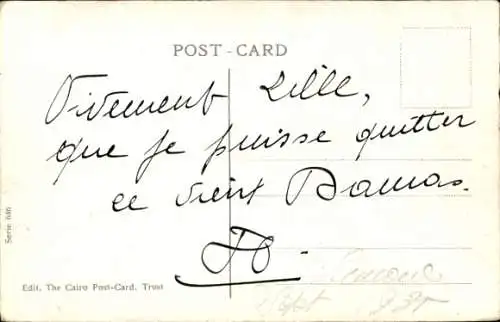 POST-CARD
Vivement Lille,
que je puisse quitter
ce vieux Damas.
Serie 646
Edit. The Cairo Post-Card. Trust